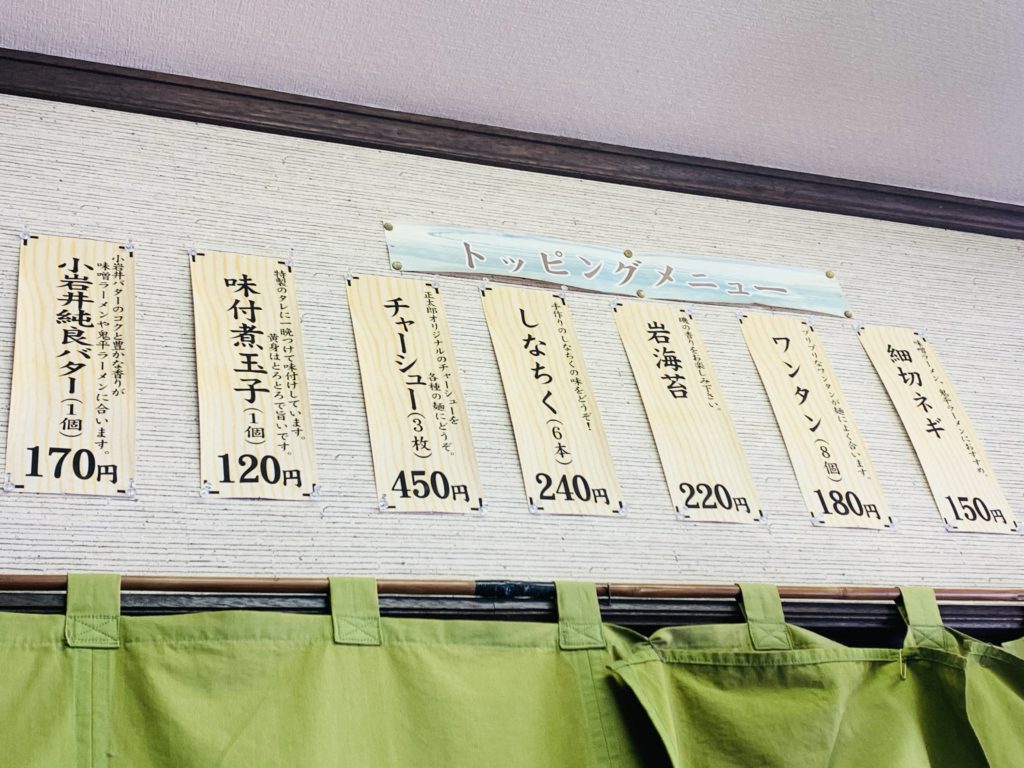 トッピングメニュー
細切ネギ
味噌ラーメン、鬼平ラーメンにおすすめ
150円
ワンタン(8個)
プリプリなワンタンが麺によく合います。
180円
岩海苔
磯の香りをお楽しみ下さい。
220円
しなちく(6本)
手作りのしなちくの味をどうぞ!
240円
チャーシュー(3枚)
正太郎オリジナルのチャーシューを
各種の麺にどうぞ。
450円
味付煮玉子(1個)
特製のタレに一晩つけて味付けしています。
黄身はとろとろで旨いです。
120円
小岩井純良バター(1個)
小岩井バターのコクと豊かな香りが
味噌ラーメンや鬼平ラーメンに合います。
170円